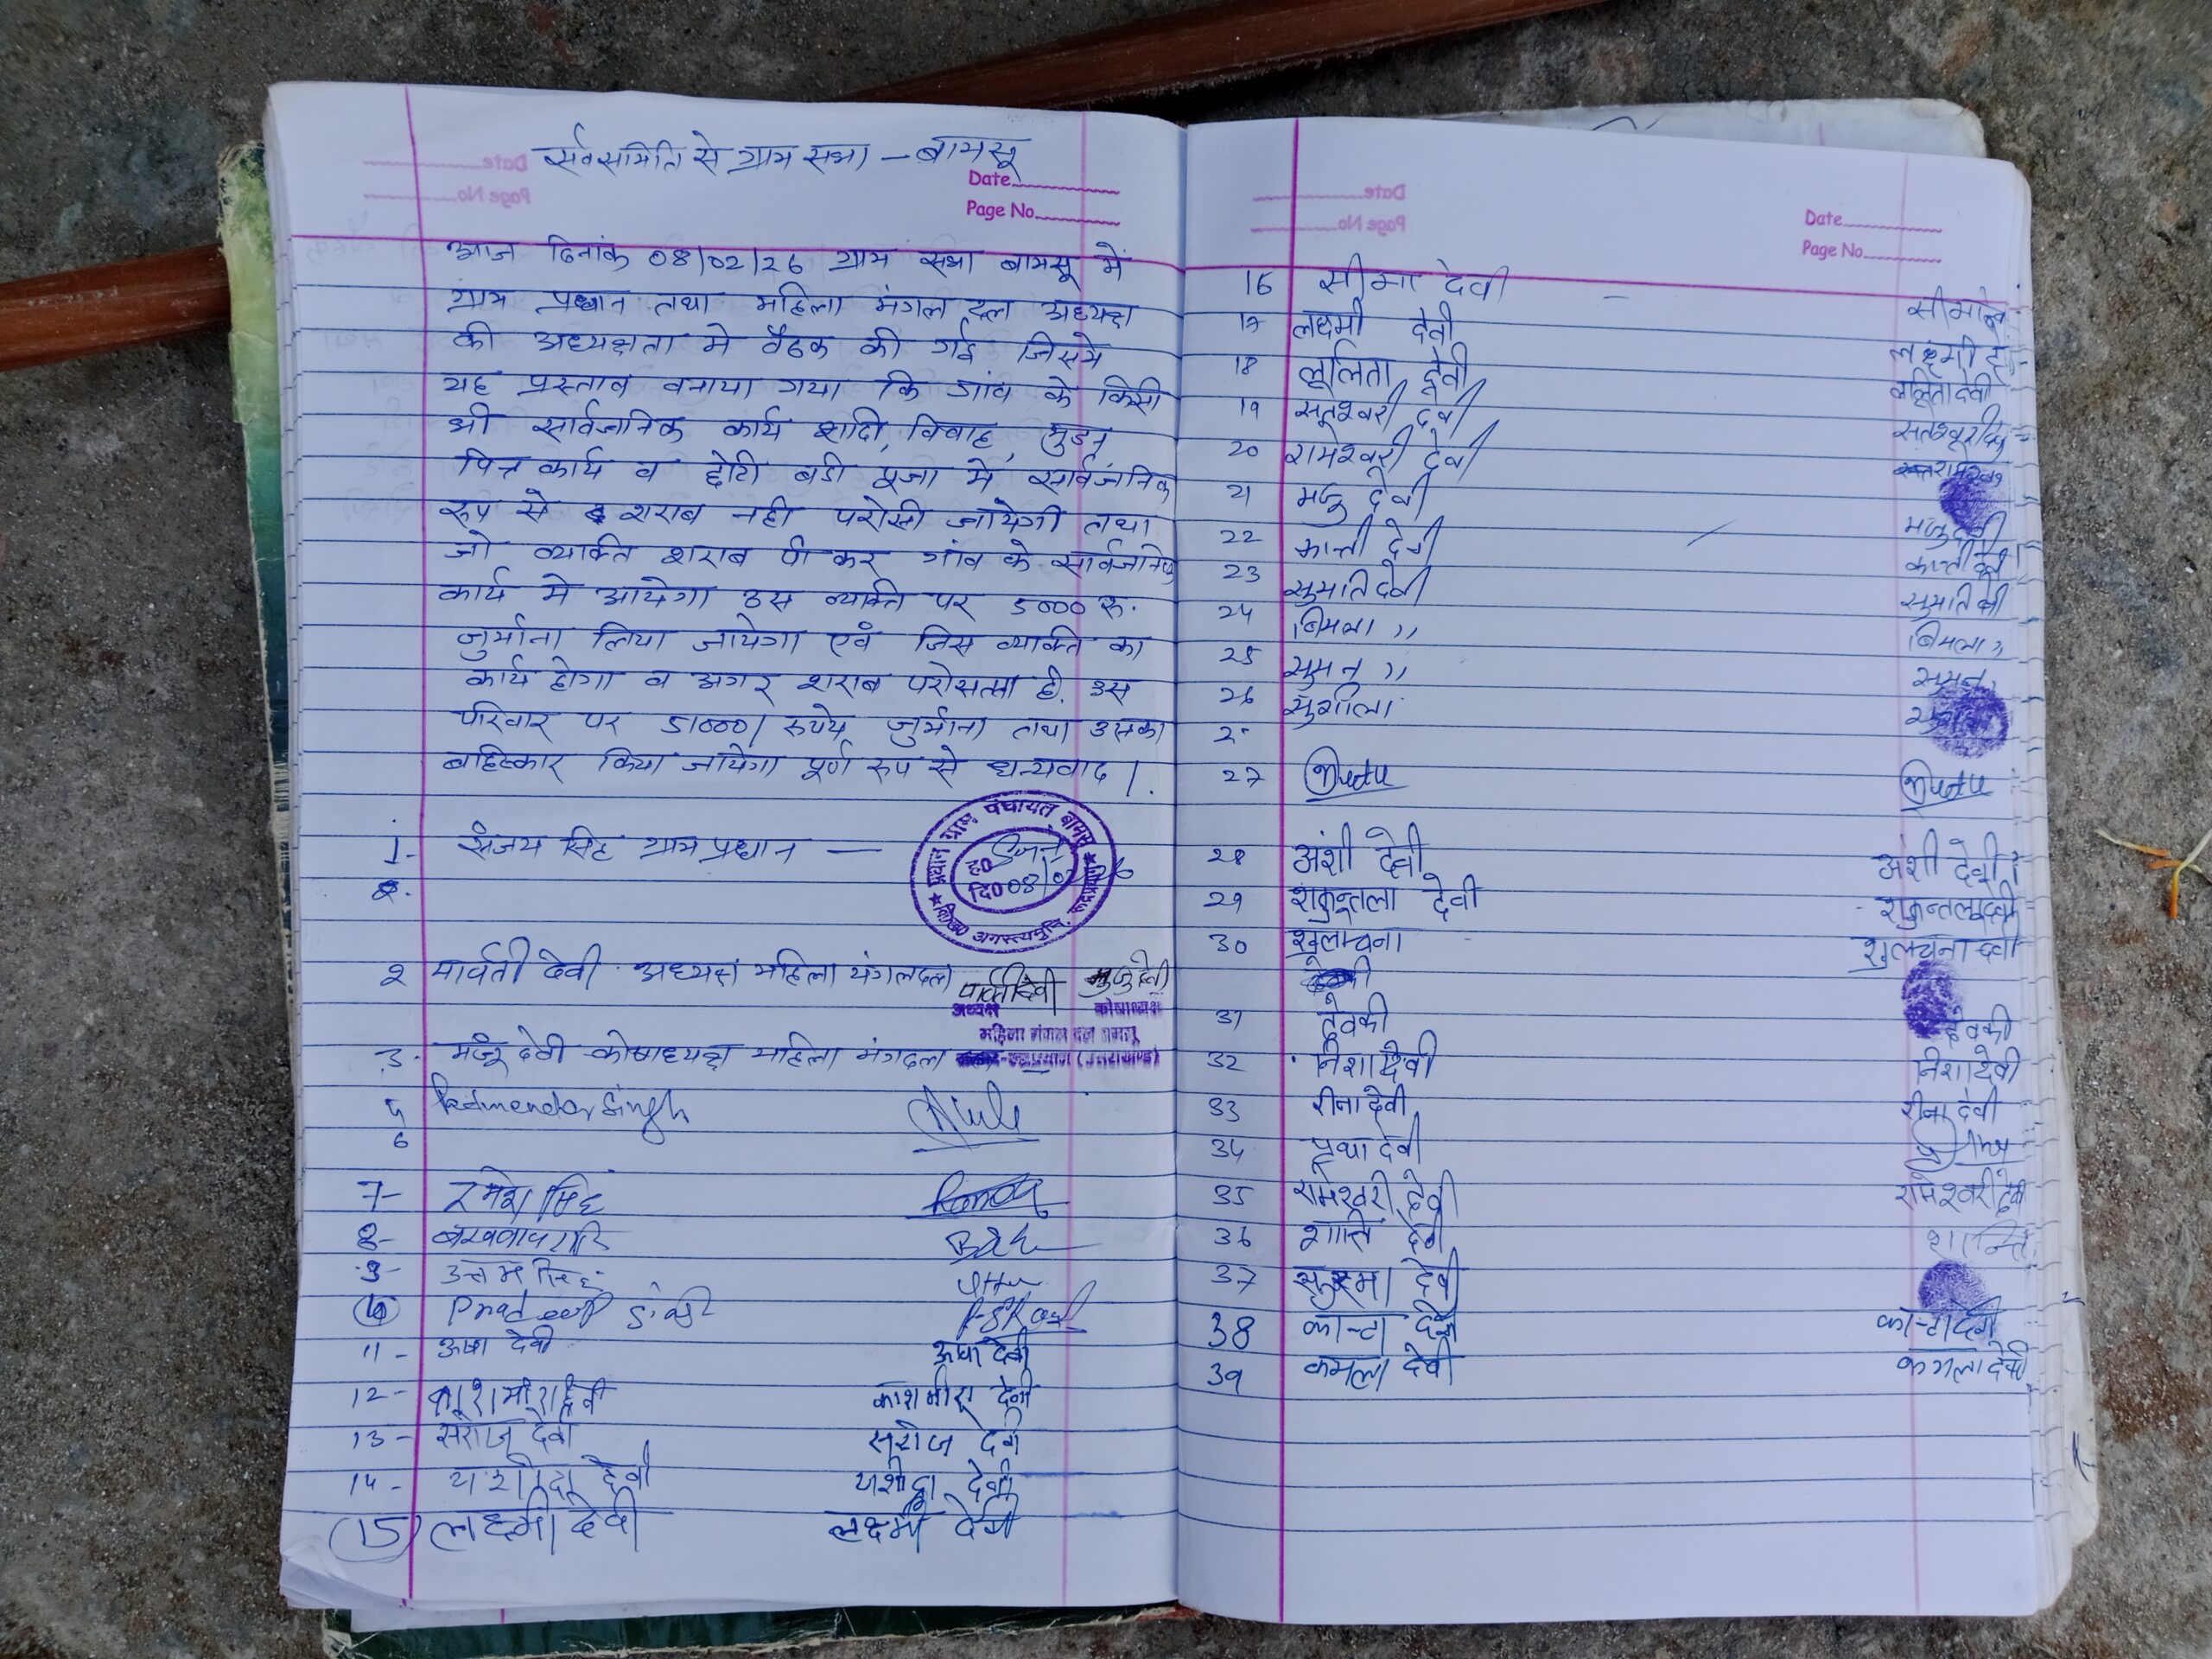 सर्वसमिति से ग्राम सभा – बामसू
Date
Page No.
आज दिनांक 08/02/26 ग्राम सभा बामसू में
ग्राम प्रधान तथा महिला मंगल दल अध्यक्ष
की अध्यक्षता मे बैठक की गई जिसमे
यह प्रस्ताव बनाया गया कि गांव के किसी
भी सार्वजनिक कार्य शादी, विवाह, मुडन,
पित्र कार्य व छोटी बडी पूजा मे सार्वजनिक
रूप से शराब नही परोसी जायेगी तथा
जो व्यक्ति शराब पी कर गांव के सार्वजनिक
कार्य मे आयेगा उस व्यक्ति पर 5000 रु.
जुर्माना लिया जायेगा एवं जिस व्यक्ति का
कार्य होगा व अगर शराब परोसता है. उस
परिवार पर 51000/ रुपये जुर्माना तथा उसका
बहिस्कार किया जायेगा पूर्ण रूप से धन्यवाद।
1- संजय सिह ग्राम प्रधान —
प्रधान ग्राम पंचायत बामसू
ह0
दि0 08/02/26
अगस्त्यमुनि
2.
2 पार्वती देवी अध्यक्ष महिला मंगलदल पार्वतीदेवी मंजुदेवी
अध्यक्ष कोषाध्यक्ष
महिला मंगल दल बामसू
(उत्तराखण्ड)
3. मंजू देवी कोषाध्यक्ष महिला मंगदल
5 Singh
6
7- रमेश सिंह
8-
9- उत्तम सिंह
10
11- ऊषा देवी ऊषा देवी
12- काशमीरा देवी काशमीरा देवी
13- सरोज देवी सरोज देवी
14- यशोदा देवी यशोदा देवी
15 लक्ष्मी देवी लक्ष्मी देवी
Date
Page No.
16 सीमा देवी
17 लक्ष्मी देवी
18 ललिता देवी ललितादेवी
19 सतेश्वरी देवी
20 रामेश्वरी देवी
21 मंजु देवी मंजु देवी
22 कान्ती देवी
23 सुमति देवी
24 बिमला ,, बिमला ,,
25 सुमन ,, सुमन
26 सुशीला
27
28 अंशी देवी अंशी देवी
29 शकुन्तला देवी शकुन्तलादेवी
30 शुलोचना शुलोचना देवी
31 देवकी देवकी
32 निशादेवी निशादेवी
33 रीना देवी रीना देवी
34
35 रामेश्वरी देवी रामेश्वरी देवी
36 शान्ति देवी शान्ति
37 देवी
38 कान्ता देवी कान्तादेवी
39 कमला देवी कमला देवी